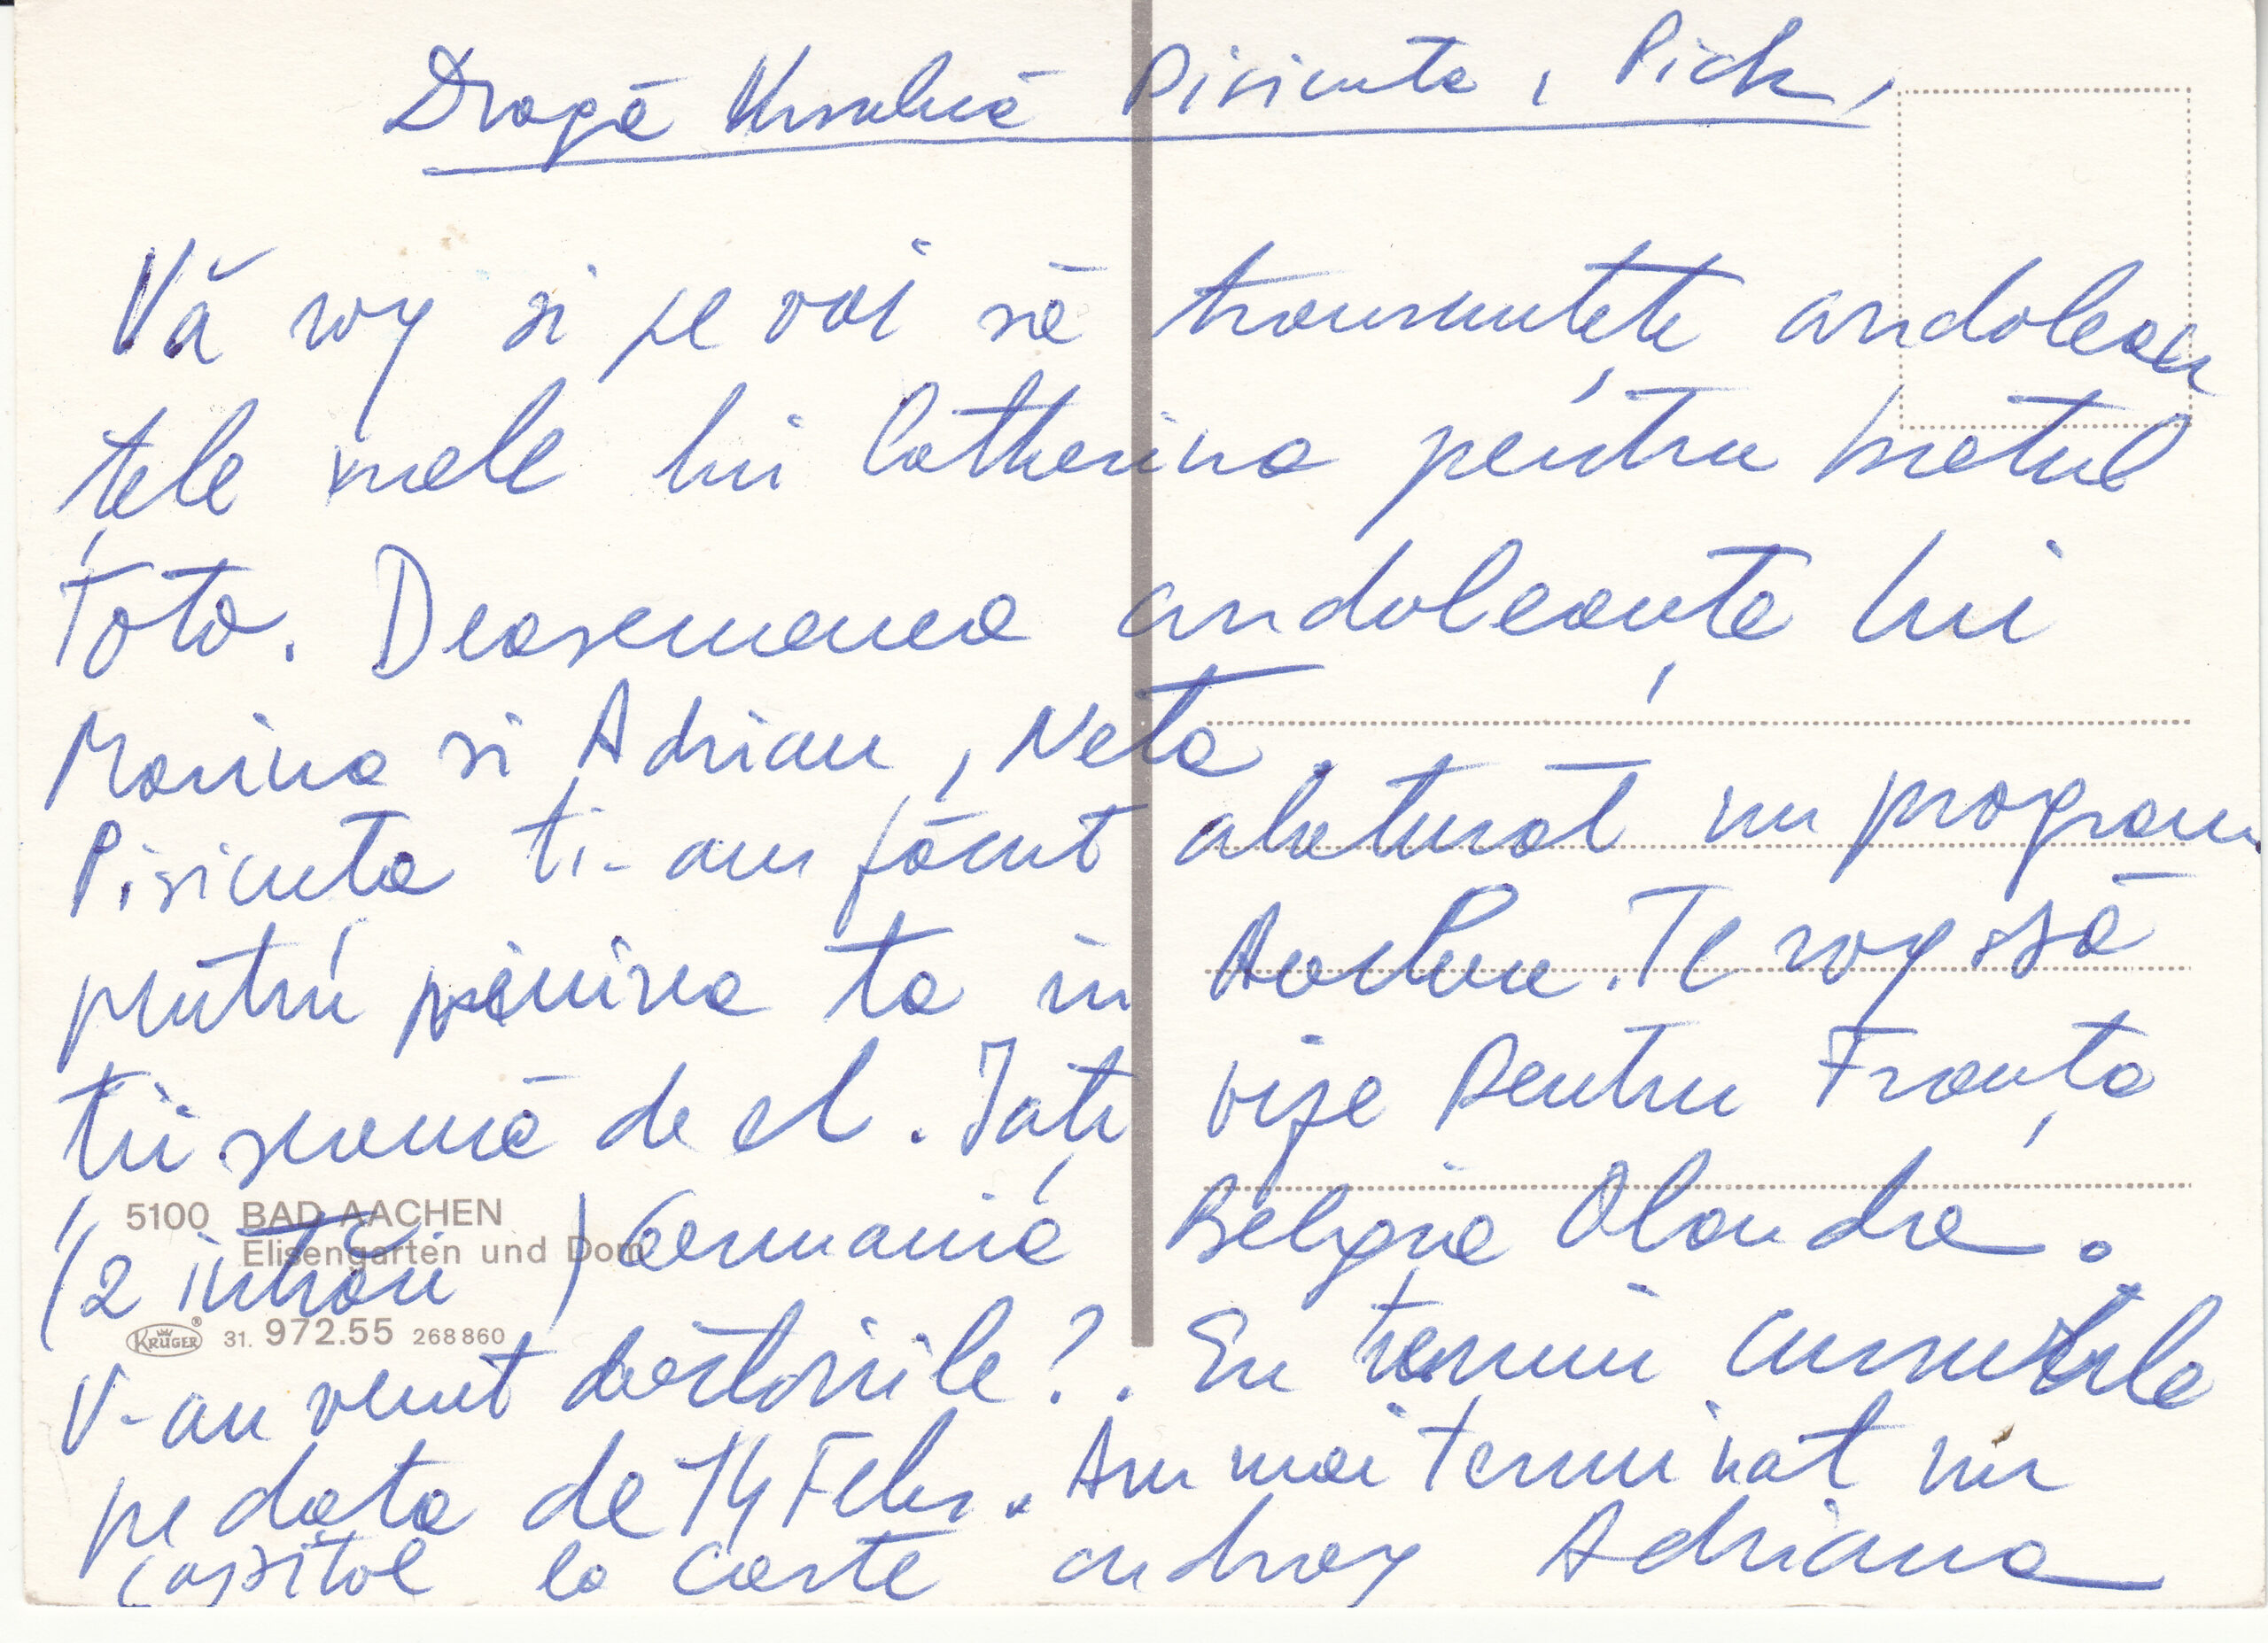 Dragă Ursulică Pisicuța, Pick,
Vă rog si pe voi să transmiteți condolean
țele mele lui Catherina pentru bietul
Toto. Deasemenea condoleanțe lui
Marina si Adrian, Neta.
Pisicuța ti-am făcut alaturat un program
pentru venirea ta in Aachen. Te rog să
ții seamă de el. Iați vize pentru Franța
(2 intrări) Germania Belgia Olanda.
V-au venit dactoriile?. Eu termin cursurile
pe data de 14 Febr. Am mai terminat un
capitol la carte cu drag Adriana
5100 BAD AACHEN
Elisengarten und Dom
KRÜGER® 31. 972.55 268860